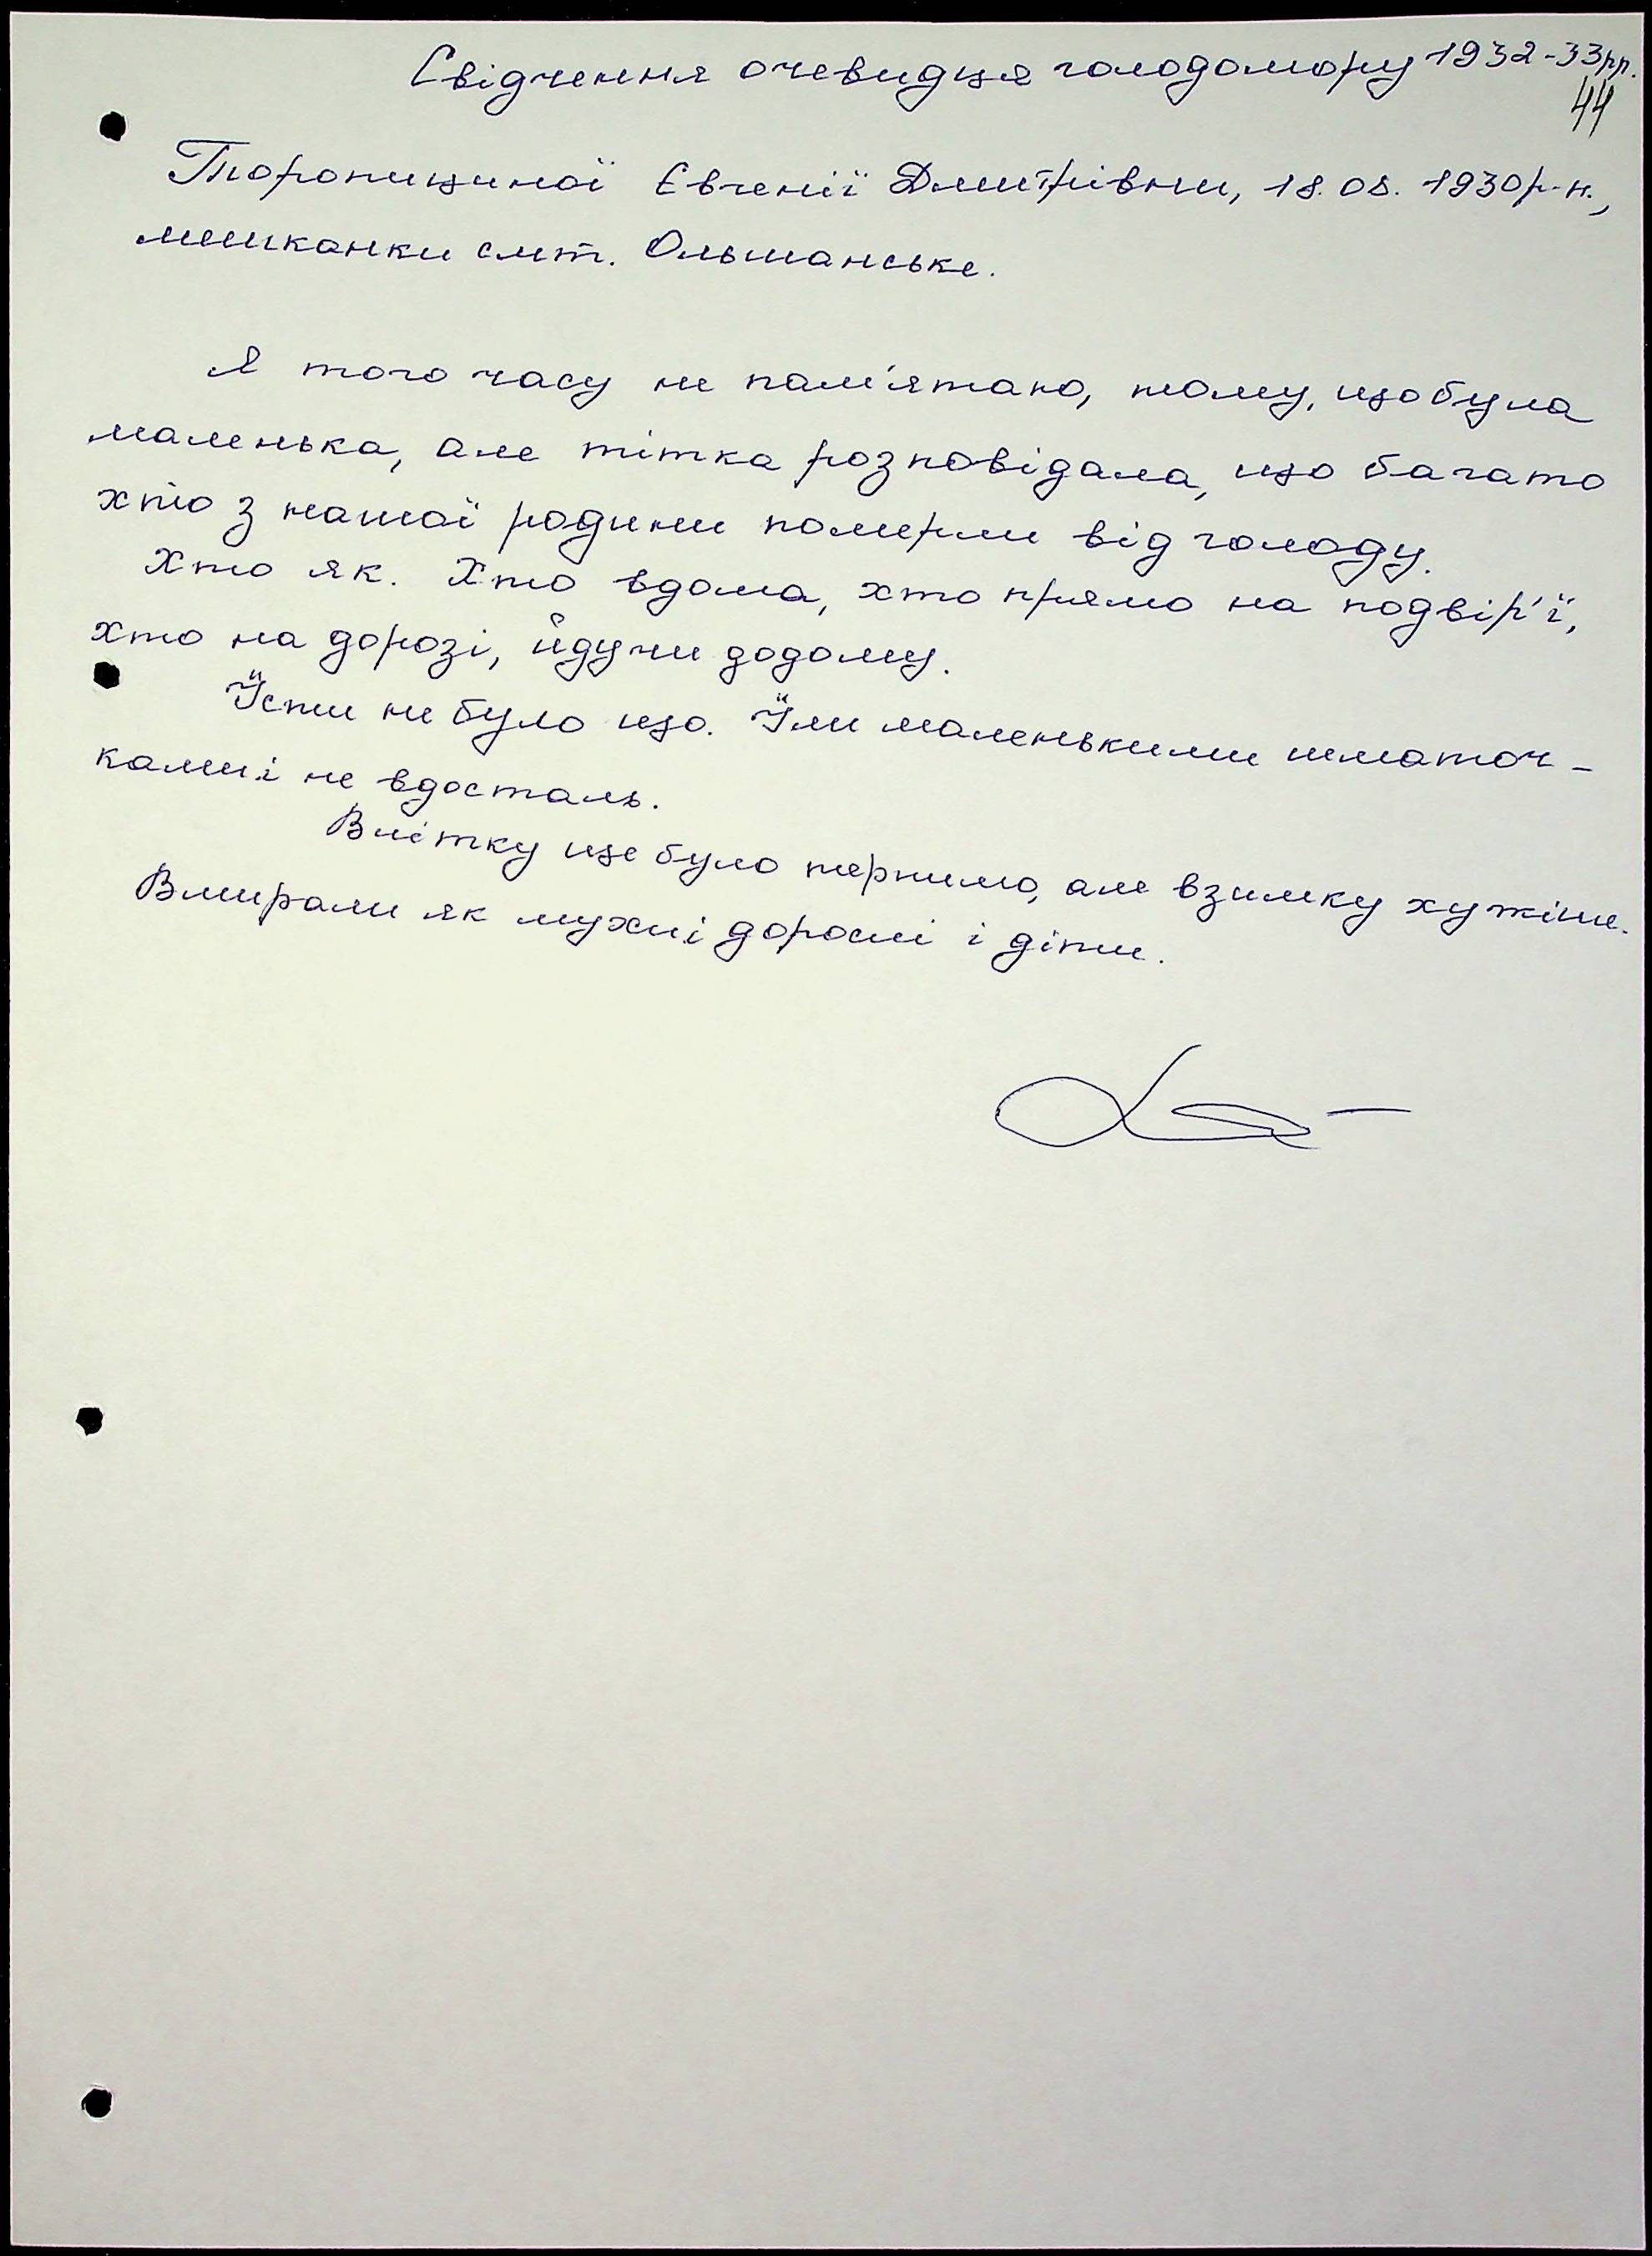 Свідчення очевидця голодомору 1932-33рр.
44
Торопициної Євгенії Дмитрівни, 18.08.1930р.н.,
мешканки смт. Ольшанське.
Я того часу не пам'ятаю, тому, що була
маленька, але тітка розповідала, що багато
хто з нашої родини померли від голоду.
Хто як. Хто вдома, хто прямо на подвір'ї,
хто на дорозі, йдучи додому.
Їсти не було що. Їли маленькими шматоч-
ками і не вдосталь.
Влітку ще було терпимо, але взимку хужіше.
Вмирали як мухи і дорослі і діти.